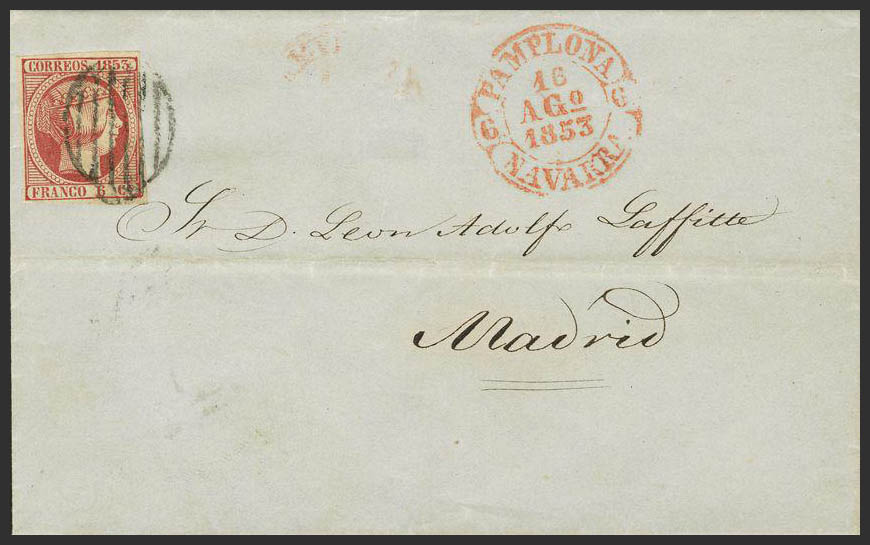 CORREOS 1853
FRANCO 6 C
PAMPLONA
6 6
16
AGO
1853
NAVARRA
Sr D. Leon Adolfo Laffitte
Madrid